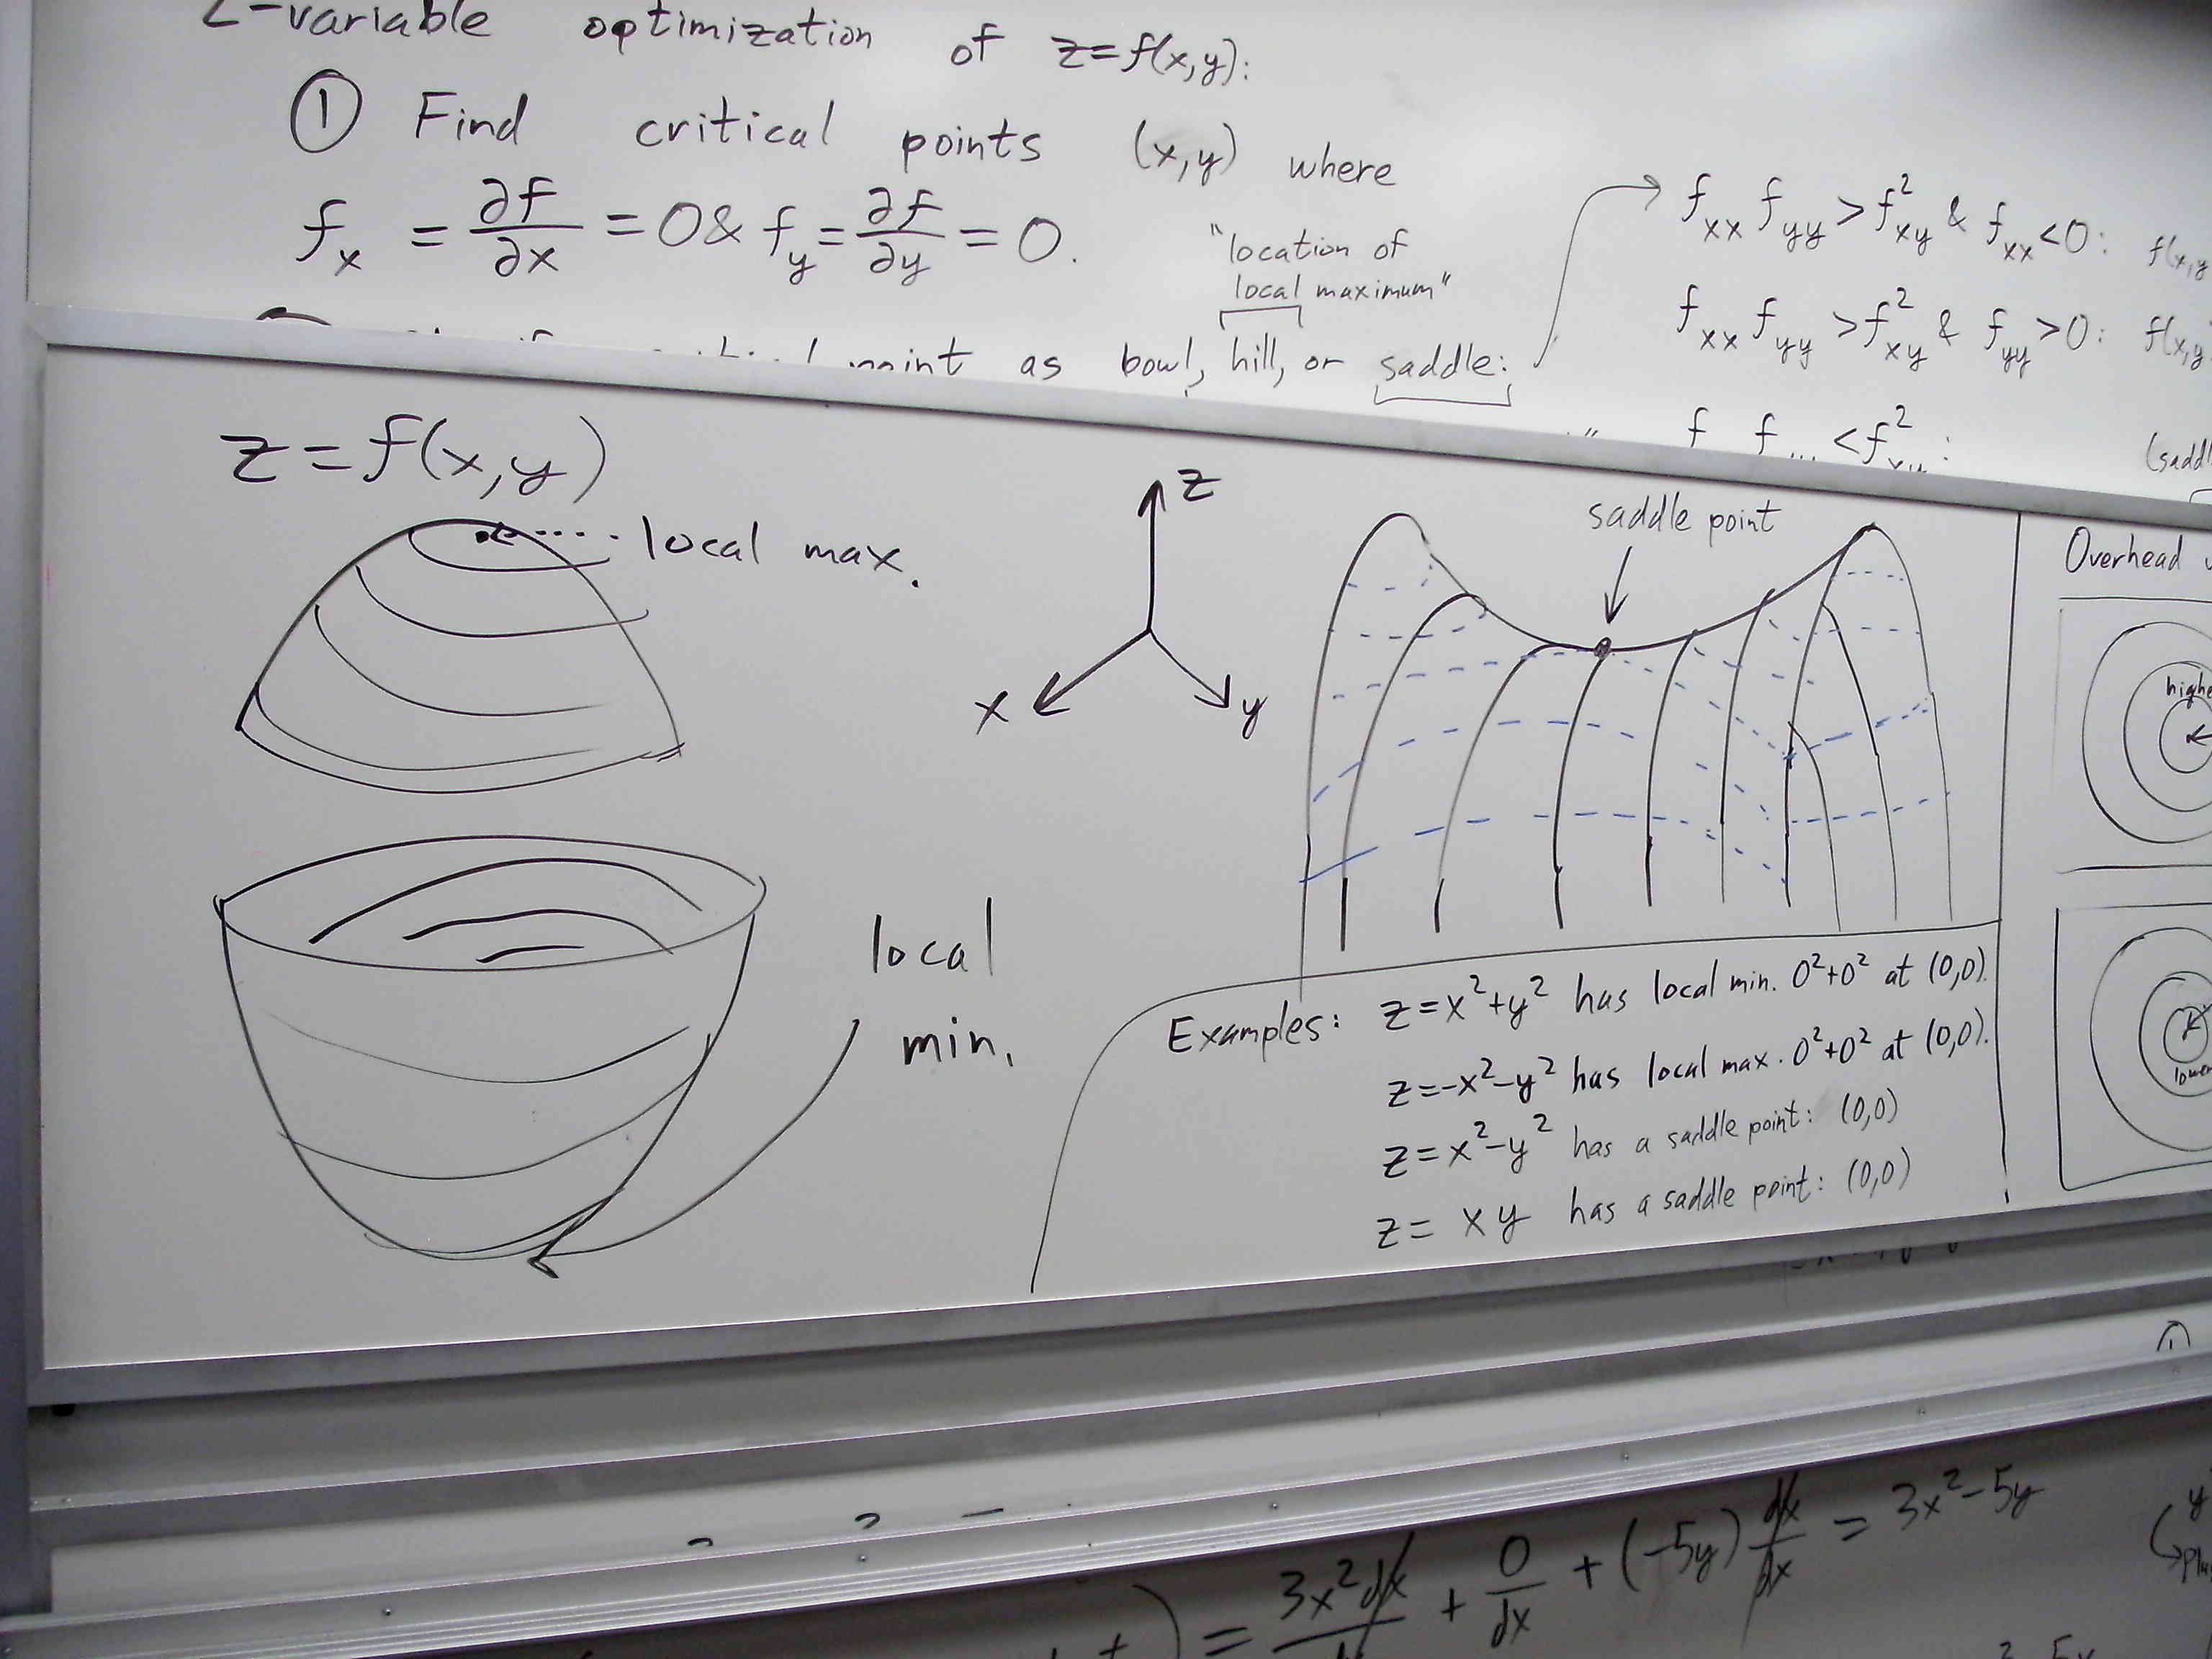 2-variable optimization of z=f(x,y):
① Find critical points (x,y) where
f_x = ∂f/∂x = 0 & f_y = ∂f/∂y = 0.
"location of
local maximum"
point as bowl, hill, or saddle:
f_xx f_yy > f_xy^2 & f_xx < 0: f(x,y
f_xx f_yy > f_xy^2 & f_yy > 0: f(x,y
f f < f_xy^2 :
z=f(x,y)
local max.
local
min.
z
x
y
saddle point
Examples: z=x²+y² has local min. 0²+0² at (0,0).
z=-x²-y² has local max. 0²+0² at (0,0).
z=x²-y² has a saddle point: (0,0)
z= xy has a saddle point: (0,0)
Overhead
= 3x²dx + 0/dx + (-5y) dx/dx = 3x²-5y